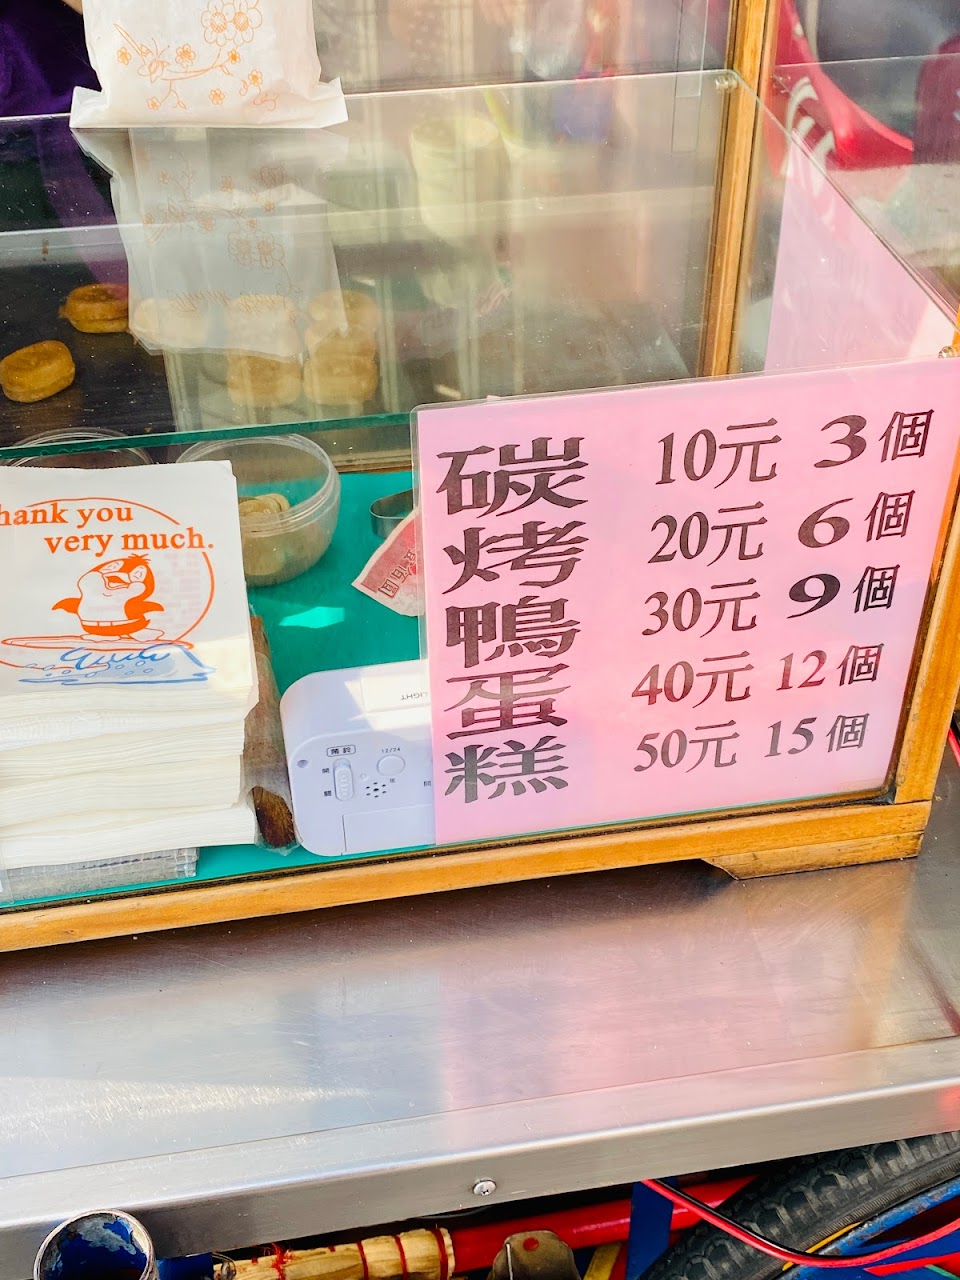 hank you
very much.
碳烤鴨蛋糕
10元 3個
20元 6個
30元 9個
40元 12個
50元 15個
LIGHT
12/24
鬧鈴
開
關